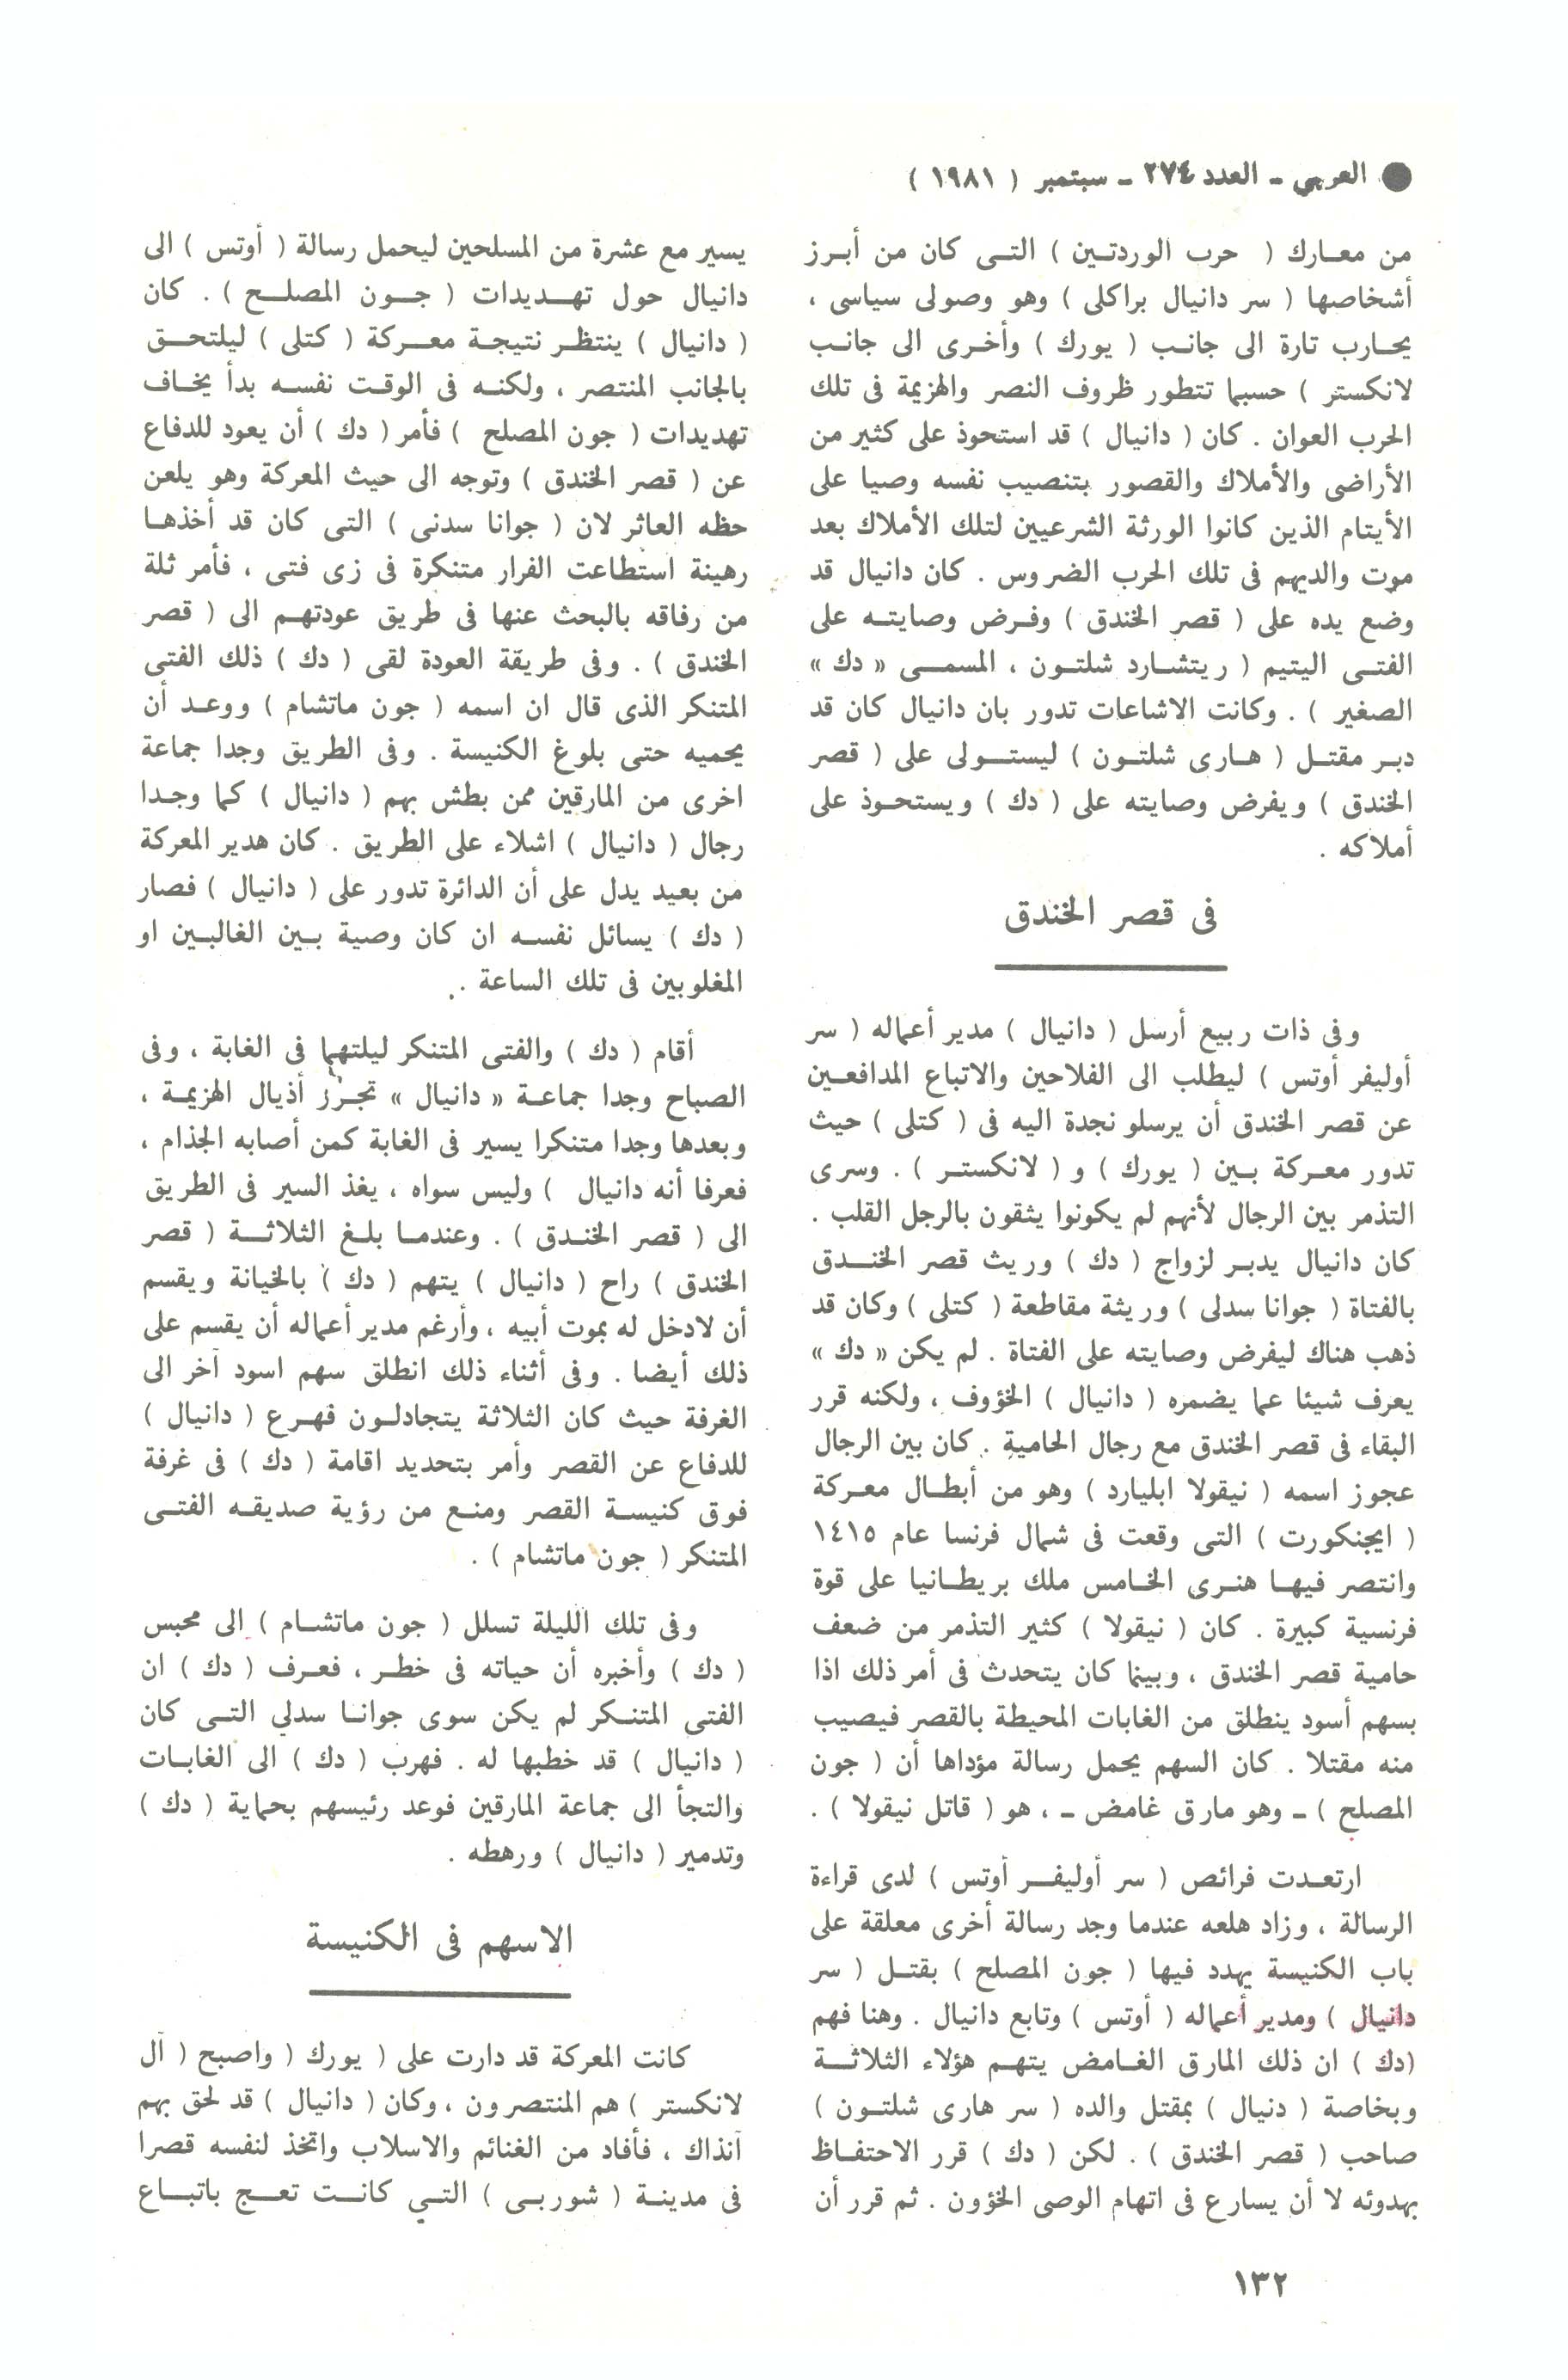 ● العربي - العدد ٢٧٤ - سبتمبر ( ١٩٨١ )
من معـارك ( حرب الوردتـين ) التـى كان من أبـرز
أشخاصها ( سر دانيال براكلى ) وهو وصولى سياسى ،
يحـارب تارة الى جانـب ( يورك ) وأخـرى الى جانـب
لانكستر ) حسبما تتطور ظروف النصر والهزيمة فى تلك
الحرب العوان . كان ( دانيال ) قد استحوذ على كثير من
الأراضى والأملاك والقصور بتنصيب نفسه وصيا على
الأيتام الذين كانوا الورثة الشرعيين لتلك الأملاك بعد
موت والديهم فى تلك الحرب الضروس . كان دانيال قد
وضع يده على ( قصر الخندق ) وفـرض وصايتـه على
الفتـى اليتيم ( ريتشـارد شلتـون ، المسمـى « دك »
الصغير ) . وكانت الاشاعات تدور بان دانيال كان قد
دبـر مقتـل ( هـارى شلتـون ) ليستـولى على ( قصر
الخندق ) ويفرض وصايته على ( دك ) ويستحـوذ على
أملاكه .
فى قصر الخندق
وفى ذات ربيع أرسل ( دانيال ) مدير أعماله ( سر
أوليفر أوتس ) ليطلب الى الفلاحين والاتباع المدافعـين
عن قصر الخندق أن يرسلو نجدة اليه فى ( كتلى ) حيث
تدور معـركة بـين ( يورك ) و ( لانكستـر ) . وسرى
التذمر بين الرجال لأنهم لم يكونوا يثقون بالرجل القلب .
كان دانيال يدبـر لزواج ( دك ) وريث قصر الخنـدق
بالفتاة ( جوانا سدلى ) وريثة مقاطعة ( كتلى ) وكان قد
ذهب هناك ليفرض وصايته على الفتاة . لم يكن « دك »
يعرف شيئا عما يضمره ( دانيال ) الخؤوف ، ولكنه قرر
البقاء فى قصر الخندق مع رجال الحامية . كان بين الرجال
عجوز اسمه ( نيقولا ابليارد ) وهو من أبطـال معـركة
( ايجنكورت ) التى وقعت فى شمال فرنسا عام ١٤١٥
وانتصر فيهـا هنـرى الخـامس ملك بريطـانيا على قوة
فرنسية كبيرة . كان ( نيقولا ) كثير التذمر من ضعف
حامية قصر الخندق ، وبينما كان يتحدث فى أمر ذلك اذا
بسهم أسود ينطلق من الغابات المحيطة بالقصر فيصيب
منه مقتلا . كان السهم يحمل رسالة مؤداها أن ( جون
المصلح ) - وهو مارق غامض - ، هو ( قاتل نيقولا ) .
ارتعـدت فرائص ( سر أوليفـر أوتس ) لدى قراءة
الرسالة ، وزاد هلعه عندما وجد رسالة أخرى معلقة على
باب الكنيسة يهدد فيها ( جون المصلح ) بقتـل ( سر
دانيال ) ومدير أعماله ( أوتس ) وتابع دانيال . وهنا فهم
(دك ) ان ذلك المارق الغـامض يتهـم هؤلاء الثلاثـة
وبخاصة ( دنيال ) بمقتل والده ( سر هارى شلتـون )
صاحب ( قصر الخندق ) . لكن ( دك ) قرر الاحتفـاظ
بهدوئه لا أن يسارع فى اتهام الوصى الخؤون . ثم قرر أن
يسير مع عشرة من المسلحين ليحمل رسالة ( أوتس ) الى
دانيال حول تهـديدات ( جـون المصلـح ) . كان
( دانيال ) ينتظـر نتيجـة معـركة ( كتلى ) ليلتحـق
بالجانب المنتصر ، ولكنـه فى الوقـت نفسـه بدأ يخـاف
تهديدات ( جون المصلح ) فأمر ( دك ) أن يعود للدفاع
عن ( قصر الخندق ) وتوجه الى حيث المعركة وهو يلعن
حظه العاثر لان ( جوانا سدنى ) التى كان قد أخذهـا
رهينة استطاعت الفرار متنكرة فى زى فتى ، فأمر ثلة
من رفاقه بالبحث عنها فى طريق عودتهـم الى ( قصر
الخندق ) . وفى طريقة العودة لقى ( دك ) ذلك الفتى
المتنكر الذى قال ان اسمه ( جون ماتشام ) ووعـد أن
يحميه حتى بلوغ الكنيسة . وفى الطريق وجدا جماعة
اخرى من المارقين ممن بطش بهم ( دانيال ) كما وجـدا
رجال ( دانيال ) اشلاء على الطريق . كان هدير المعركة
من بعيد يدل على أن الدائرة تدور على ( دانيال ) فصار
( دك ) يسائل نفسـه ان كان وصية بـين الغالبـين او
المغلوبين فى تلك الساعة .
أقام ( دك ) والفتى المتنكر ليلتهما فى الغابة ، وفى
الصباح وجدا جماعـة « دانيال » تجـرر أذيال الهزيمـة ،
وبعدها وجدا متنكرا يسير فى الغابة كمن أصابه الجذام ،
فعرفا أنه دانيال ) وليس سواه ، يغذ السير فى الطريق
الى ( قصر الخنـدق ) . وعندمـا بلـغ الثلاثـة ( قصر
الخندق ) راح ( دانيال ) يتهم ( دك ) بالخيانة ويقسم
أن لادخل له بموت أبيه ، وأرغم مدير أعماله أن يقسم على
ذلك أيضا . وفى أثناء ذلك انطلق سهم اسود آخر الى
الغرفة حيث كان الثلاثة يتجادلـون فهـرع ( دانيال )
للدفاع عن القصر وأمر بتحديد اقامة ( دك ) فى غرفة
فوق كنيسـة القصر ومنـع من رؤية صديقـه الفتـى
المتنكر ( جون ماتشام ) .
وفى تلك الليلة تسلل ( جون ماتشـام ) الى محبس
( دك ) وأخبره أن حياته فى خطـر ، فعـرف ( دك ) ان
الفتى المتنـكر لم يكن سوى جوانـا سدلي التـى كان
( دانيال ) قد خطبها له . فهرب ( دك ) الى الغابـات
والتجأ الى جماعة المارقين فوعد رئيسهم بحماية ( دك )
وتدمير ( دانيال ) ورهطه .
الاسهم فى الكنيسة
كانت المعركة قد دارت على ( يورك ( واصبح ( آل
لانكستر ) هم المنتصرون ، وكان ( دانيال ) قد لحق بهم
آنذاك ، فأفاد من الغنائم والاسلاب واتخذ لنفسه قصرا
فى مدينـة ( شوربـى ) التـي كانـت تعـج باتبـاع
١٣٢